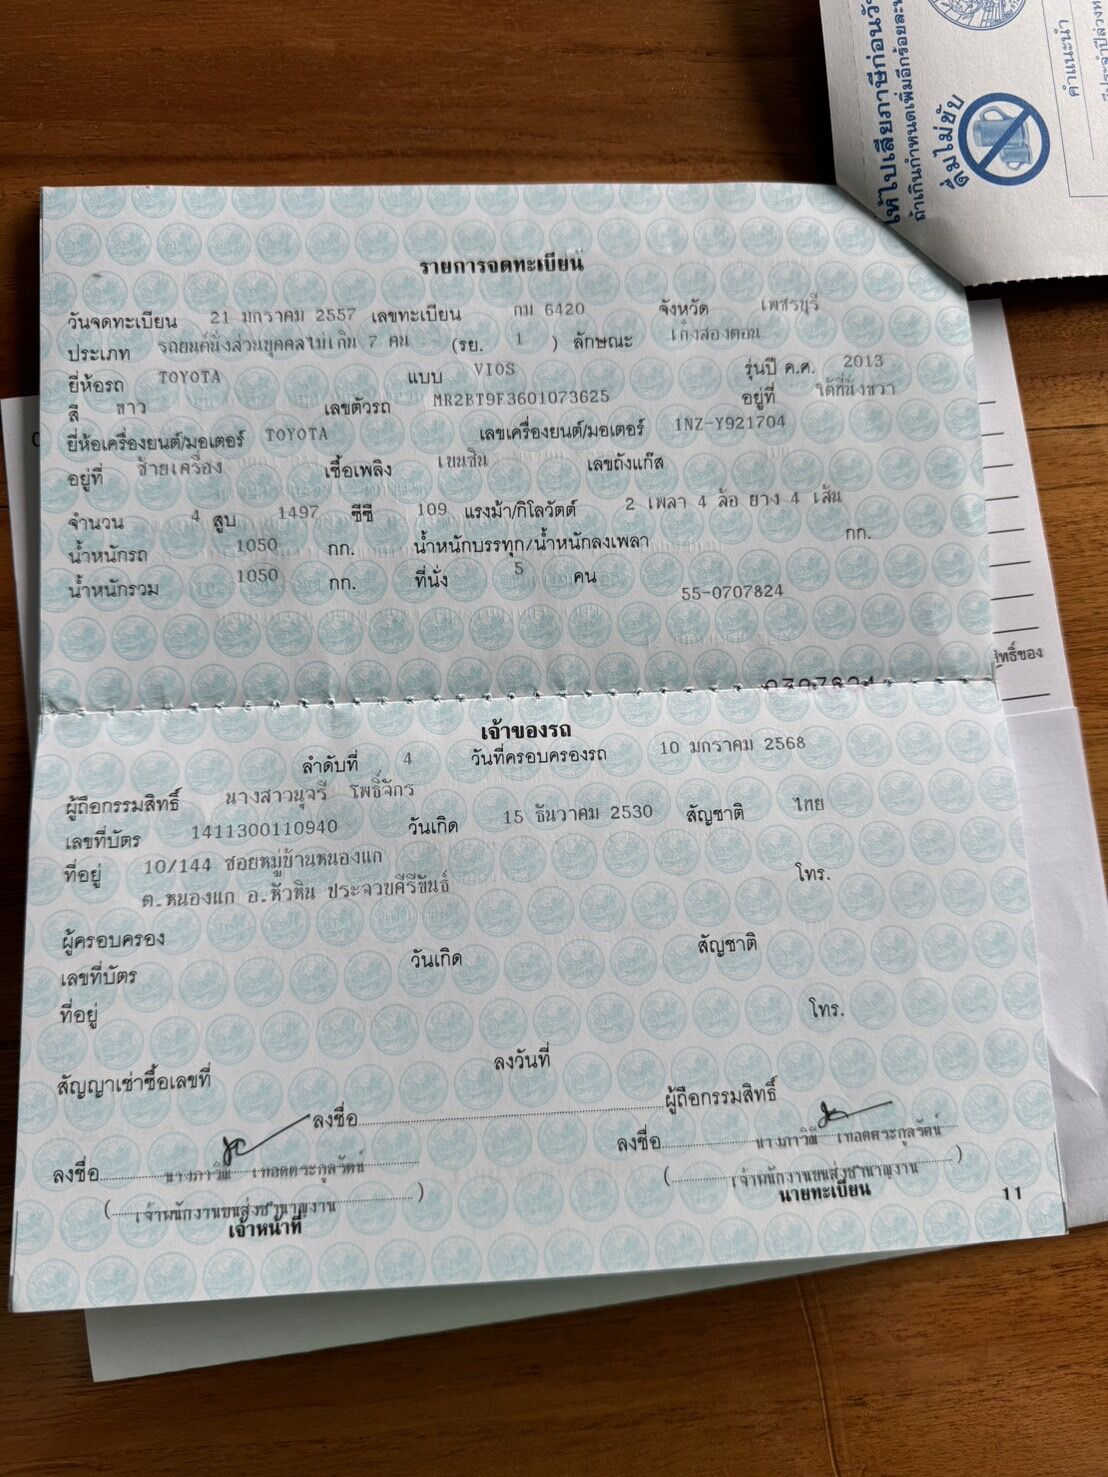 ให้ไปเสียภาษีก่อนวัน
ถ้าเกินกำหนดเพิ่มอีกร้อยละ
ดื่มไม่ขับ
คำแนะนำ
รายการจดทะเบียน
วันจดทะเบียน 21 มกราคม 2557 เลขทะเบียน กม 6420 จังหวัด เพชรบุรี
ประเภท รถยนต์นั่งส่วนบุคคลไม่เกิน 7 คน (รย. 1 ) ลักษณะ เก๋งสองตอน
ยี่ห้อรถ TOYOTA แบบ VIOS รุ่นปี ค.ศ. 2013
สี ขาว เลขตัวรถ MR2BT9F3601073625 อยู่ที่ ใต้ที่นั่งขวา
ยี่ห้อเครื่องยนต์/มอเตอร์ TOYOTA เลขเครื่องยนต์/มอเตอร์ 1NZ-Y921704
อยู่ที่ ซ้ายเครื่อง เชื้อเพลิง เบนซิน เลขถังแก๊ส
จำนวน 4 สูบ 1497 ซีซี 109 แรงม้า/กิโลวัตต์ 2 เพลา 4 ล้อ ยาง 4 เส้น
น้ำหนักรถ 1050 กก. น้ำหนักบรรทุก/น้ำหนักลงเพลา กก.
น้ำหนักรวม 1050 กก. ที่นั่ง 5 คน
55-0707824
สิทธิ์ของ
เจ้าของรถ
ลำดับที่ 4 วันที่ครอบครองรถ 10 มกราคม 2568
ผู้ถือกรรมสิทธิ์ นางสาวนุจรี โพธิ์จักร
เลขที่บัตร 1411300110940 วันเกิด 15 ธันวาคม 2530 สัญชาติ ไทย
ที่อยู่ 10/144 ซอยหมู่บ้านหนองแก โทร.
ต.หนองแก อ.หัวหิน ประจวบคีรีขันธ์
ผู้ครอบครอง
เลขที่บัตร วันเกิด สัญชาติ
ที่อยู่ โทร.
สัญญาเช่าซื้อเลขที่ ลงวันที่
ลงชื่อ ผู้ถือกรรมสิทธิ์
ลงชื่อ นางภาวิณี เทอดตระกูลรัตน์ ลงชื่อ นางภาวิณี เทอดตระกูลรัตน์
( เจ้าพนักงานขนส่งชำนาญงาน ) ( เจ้าพนักงานขนส่งชำนาญงาน )
เจ้าหน้าที่ นายทะเบียน 11